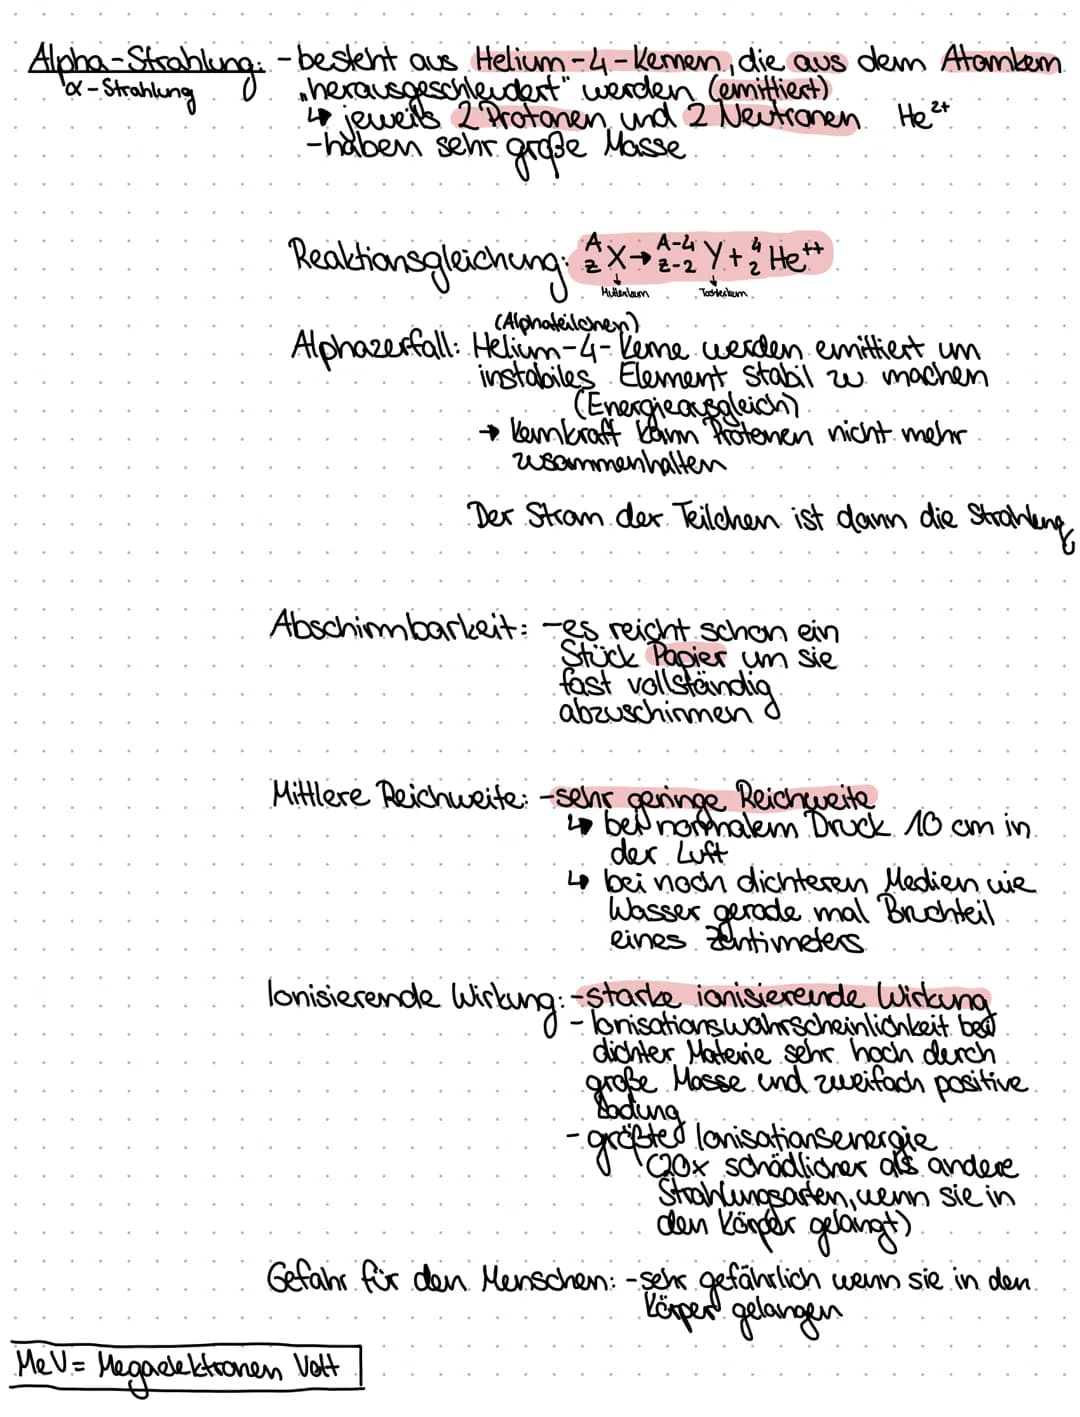 Alpha-Strahlung: - besteht aus Helium-4-Kernen, die aus dem Atomkern
α-Strahlung „herausgeschleudert" werden (emittiert)
↳ jeweils 2 Protonen und 2 Neutronen He²⁺
- haben sehr große Masse
Reaktionsgleichung: ᴬ_Z X → ᴬ⁻⁴_Z-2 Y + ⁴₂ He⁺⁺
Mutterkern Tochterkern
(Alphateilchen)
Alphazerfall: Helium-4-Kerne werden emittiert um
instabiles Element stabil zu machen
(Energieausgleich)
→ Kernkraft kann Protonen nicht mehr
zusammenhalten
Der Strom der Teilchen ist dann die Strahlung
Abschirmbarkeit: - es reicht schon ein
Stück Papier um sie
fast vollständig
abzuschirmen
Mittlere Reichweite: - sehr geringe Reichweite
↳ bei normalem Druck 10 cm in
der Luft
↳ bei noch dichteren Medien wie
Wasser gerade mal Bruchteil
eines Zentimeters
Ionisierende Wirkung: - starke ionisierende Wirkung
- Ionisationswahrscheinlichkeit bei
dichter Materie sehr hoch durch
große Masse und zweifach positive
Ladung
- größte Ionisationsenergie
(20x schädlicher als andere
Strahlungsarten, wenn sie in
den Körper gelangt)
Gefahr für den Menschen: - sehr gefährlich wenn sie in den
Körper gelangen
MeV = Megaelektronen Volt